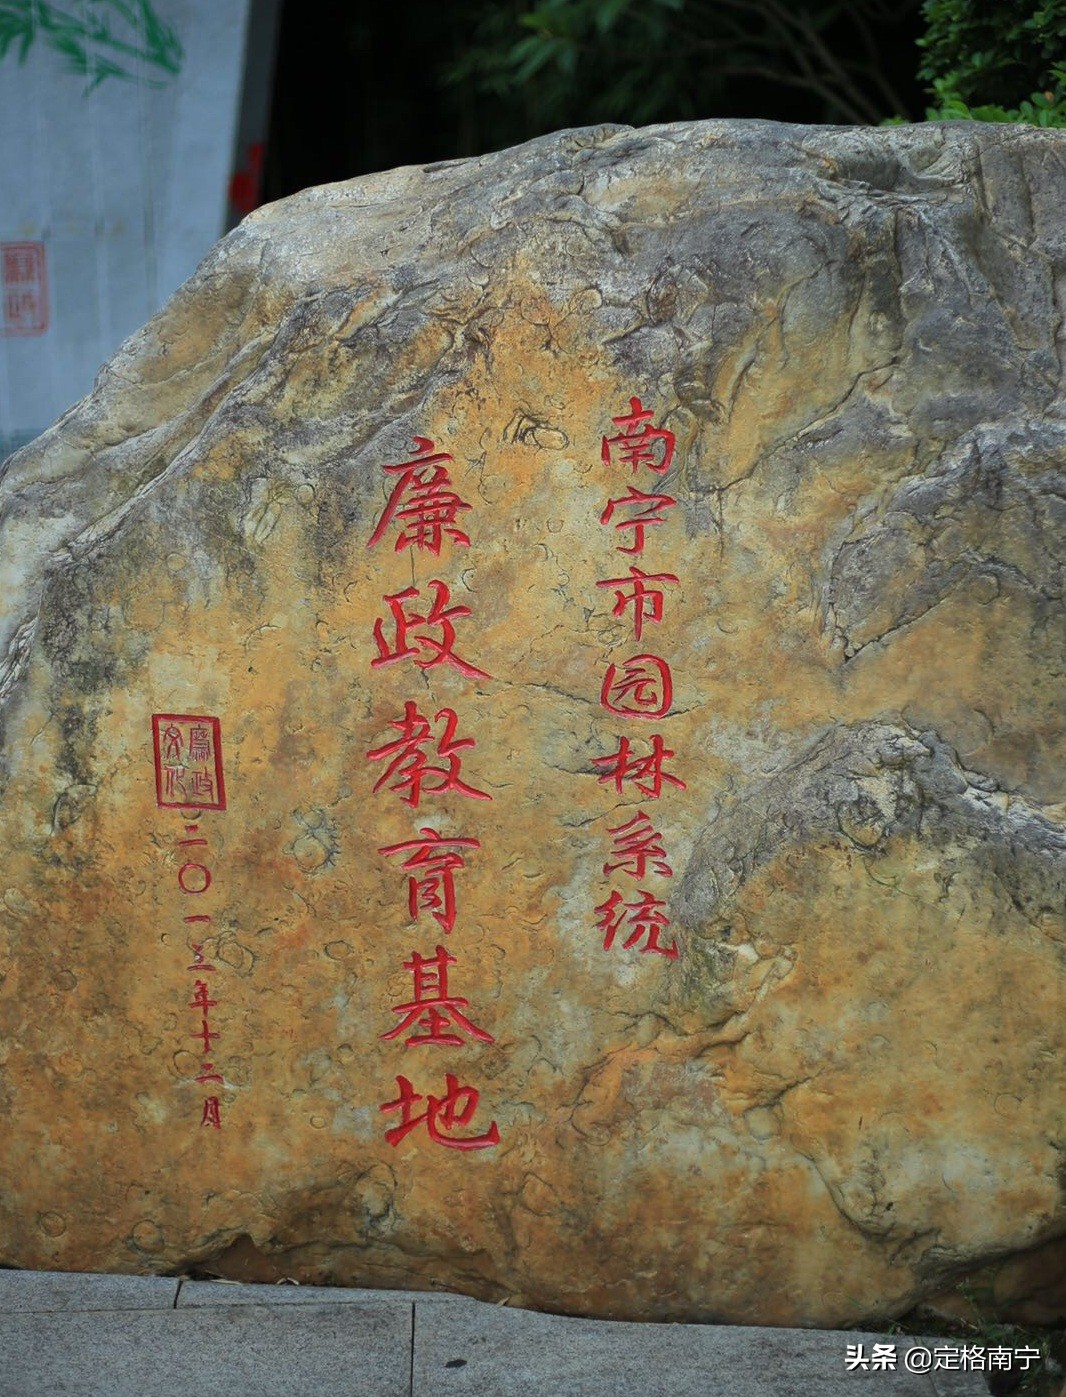 南宁市园林系统
廉政教育基地
廉政文化
二〇一三年十二月
头条 @定格南宁